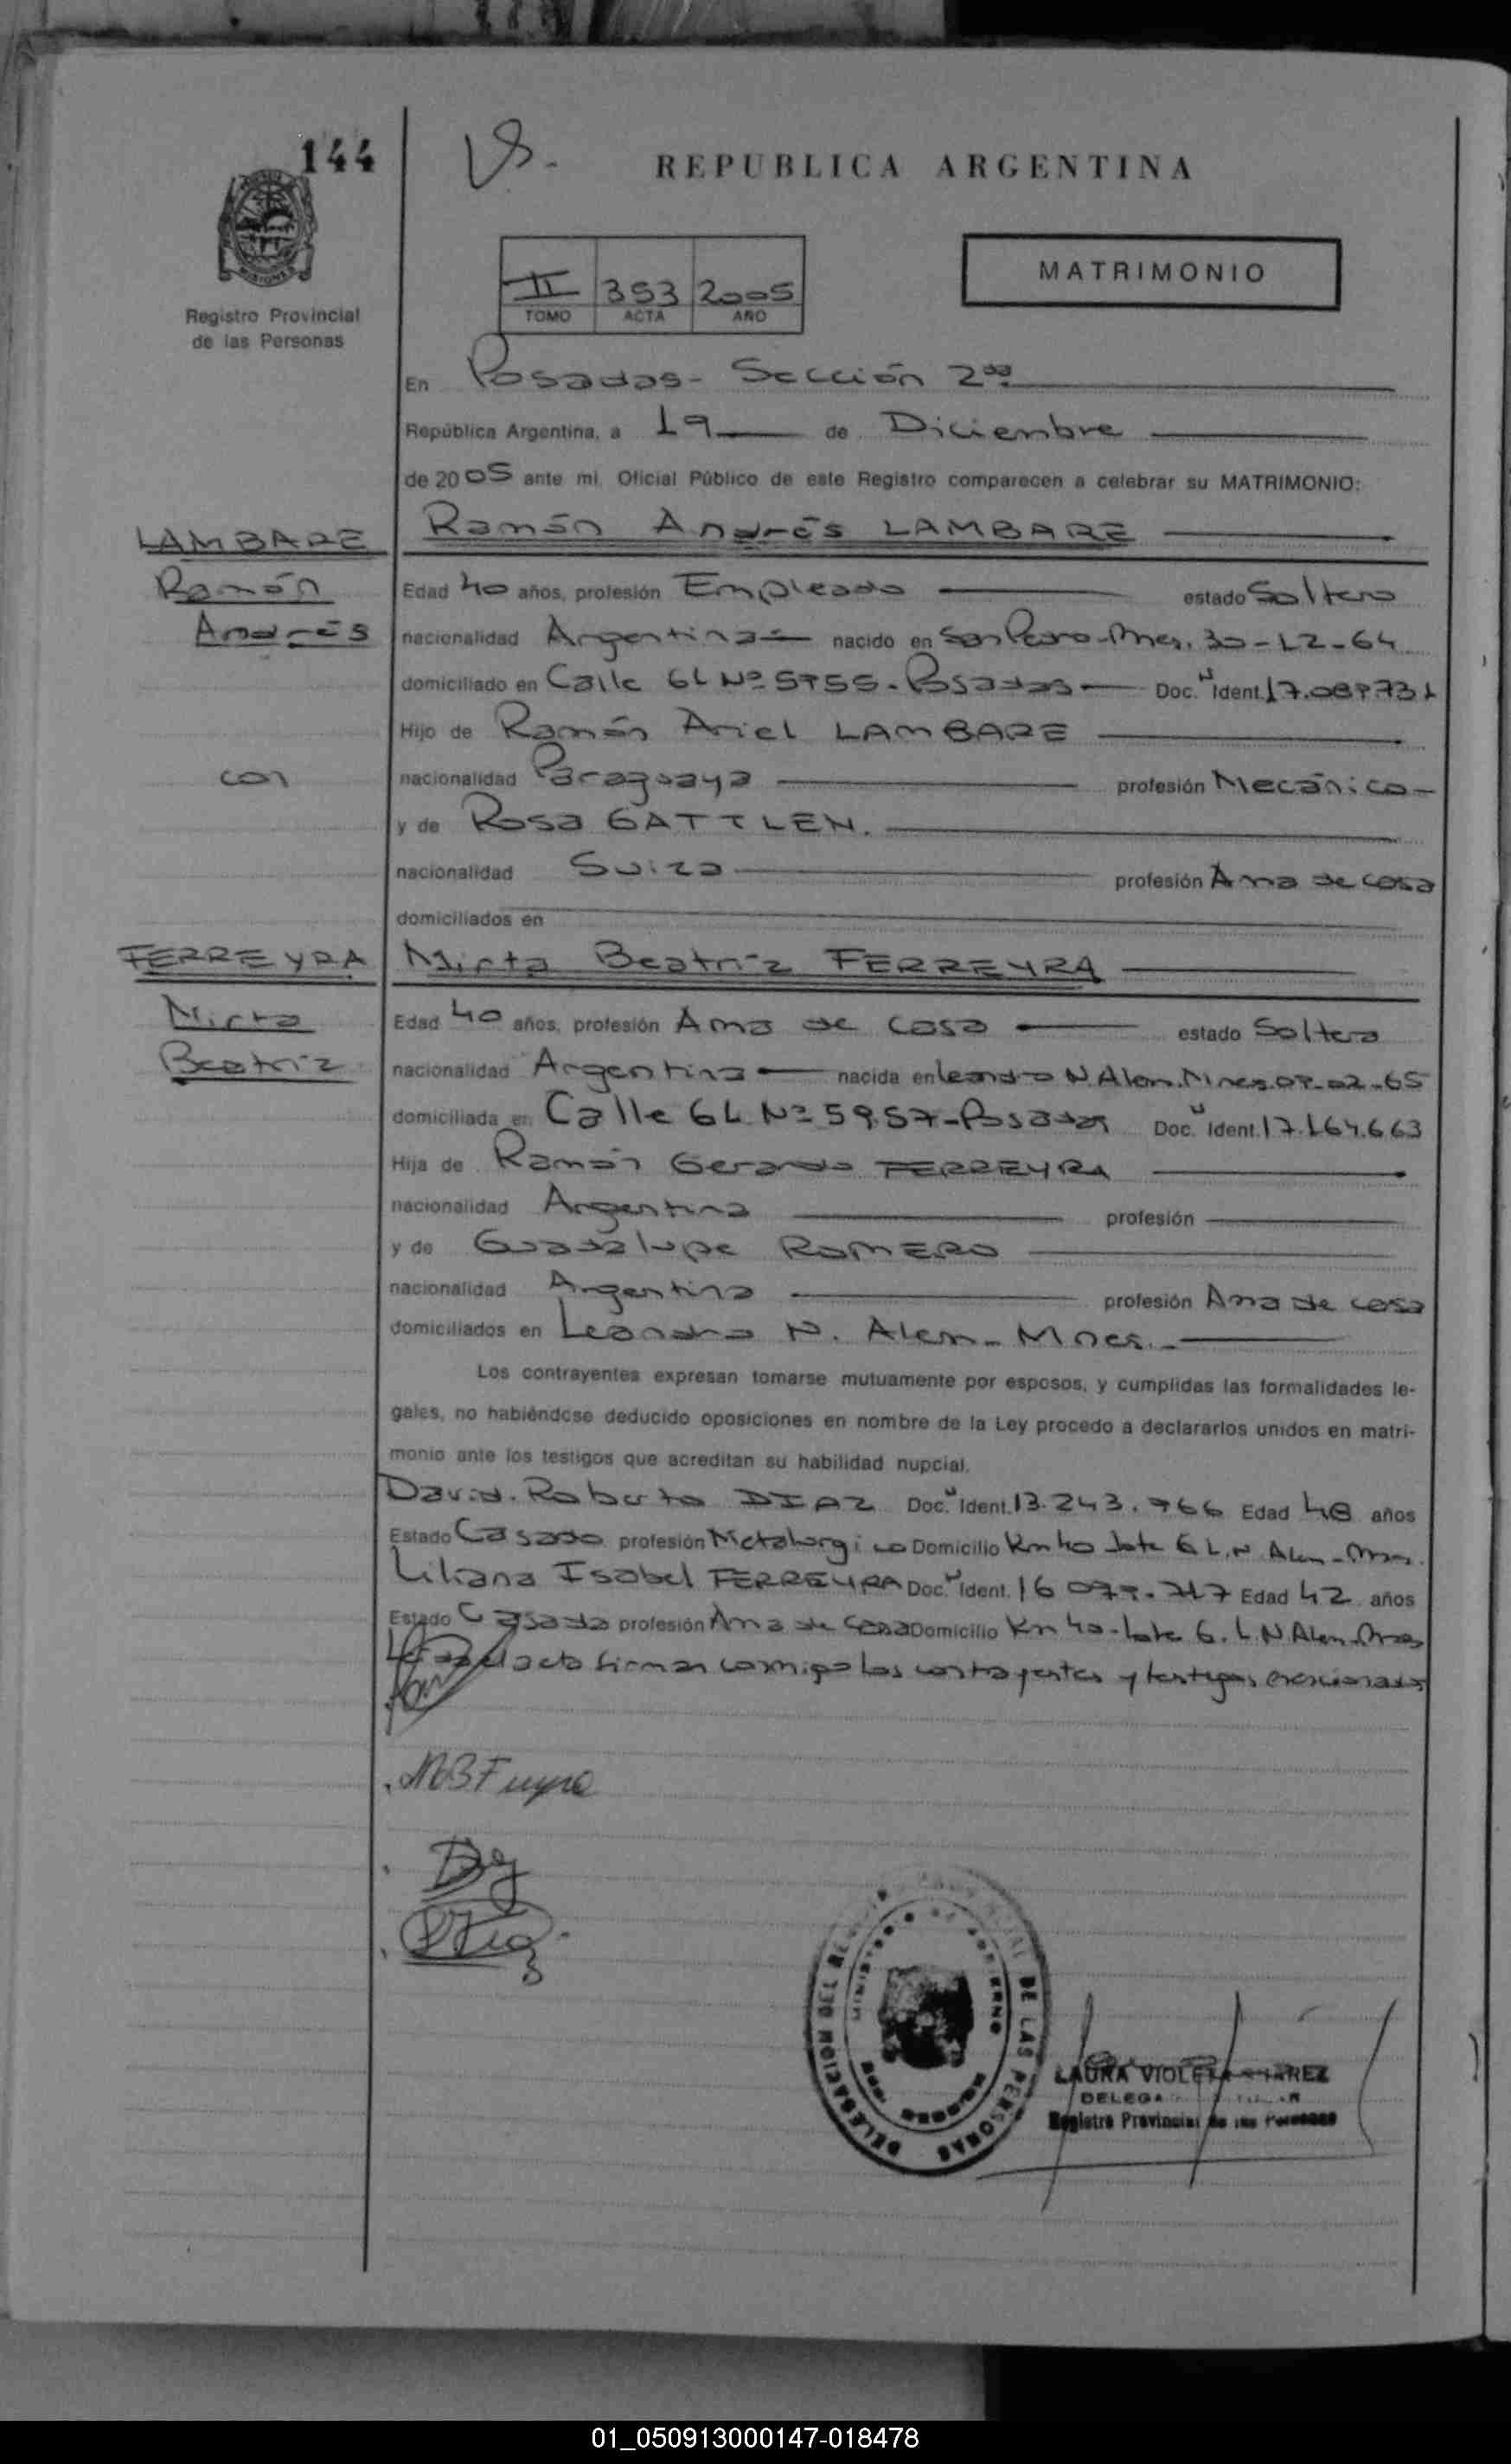 144
V8.
REPUBLICA ARGENTINA
MATRIMONIO
II 353 2005
TOMO ACTA AÑO
Registro Provincial
de las Personas
En Posadas - Sección 2da
República Argentina, a 19 de Diciembre
de 2005 ante mi, Oficial Público de este Registro comparecen a celebrar su MATRIMONIO:
LAMBARE
Ramón
Andrés
Ramón Andrés LAMBARE
Edad 40 años, profesión Empleado estado Soltero
nacionalidad Argentina nacido en San Pedro-Mnes. 30-12-64
domiciliado en Calle 61 Nº 5955 - Posadas Doc. Ident. 17.089.731
Hijo de Ramón Ariel LAMBARE
con
nacionalidad Paraguaya profesión Mecánico
y de Rosa GATTLEN.
nacionalidad Suiza profesión Ama de casa
domiciliados en
FERREYRA
Mirta
Beatriz
Mirta Beatriz FERREYRA
Edad 40 años, profesión Ama de casa estado Soltera
nacionalidad Argentina nacida en Leandro N Alem. Mnes. 02-65
domiciliada en Calle 61 Nº 5957 - Posadas Doc. Ident. 17.164.663
Hija de Ramón Gerardo FERREYRA
nacionalidad Argentina profesión
y de Guadalupe ROMERO
nacionalidad Argentina profesión Ama de casa
domiciliados en Leandro N. Alem - Mnes.
Los contrayentes expresan tomarse mutuamente por esposos, y cumplidas las formalidades le-
gales, no habiéndose deducido oposiciones en nombre de la Ley procedo a declararlos unidos en matri-
monio ante los testigos que acreditan su habilidad nupcial.
David Roberto DIAZ Doc. Ident. 13.243.966 Edad 48 años
Estado Casado profesión Metalurgico Domicilio Km 40 lote 6 L.N. Alem - Mnes.
Liliana Isabel FERREYRA Doc. Ident. 16 Edad 42 años
Estado Casada profesión Ama de casa Domicilio Km 40 - lote 6. L.N Alem - Mnes
acta firman conmigo los contrayentes y testigos mencionados
DE LAS PERSONAS
DELEGACION
LAURA VIOLETA
DELEGA
Registro Provincial de las Personas
01_050913000147-018478